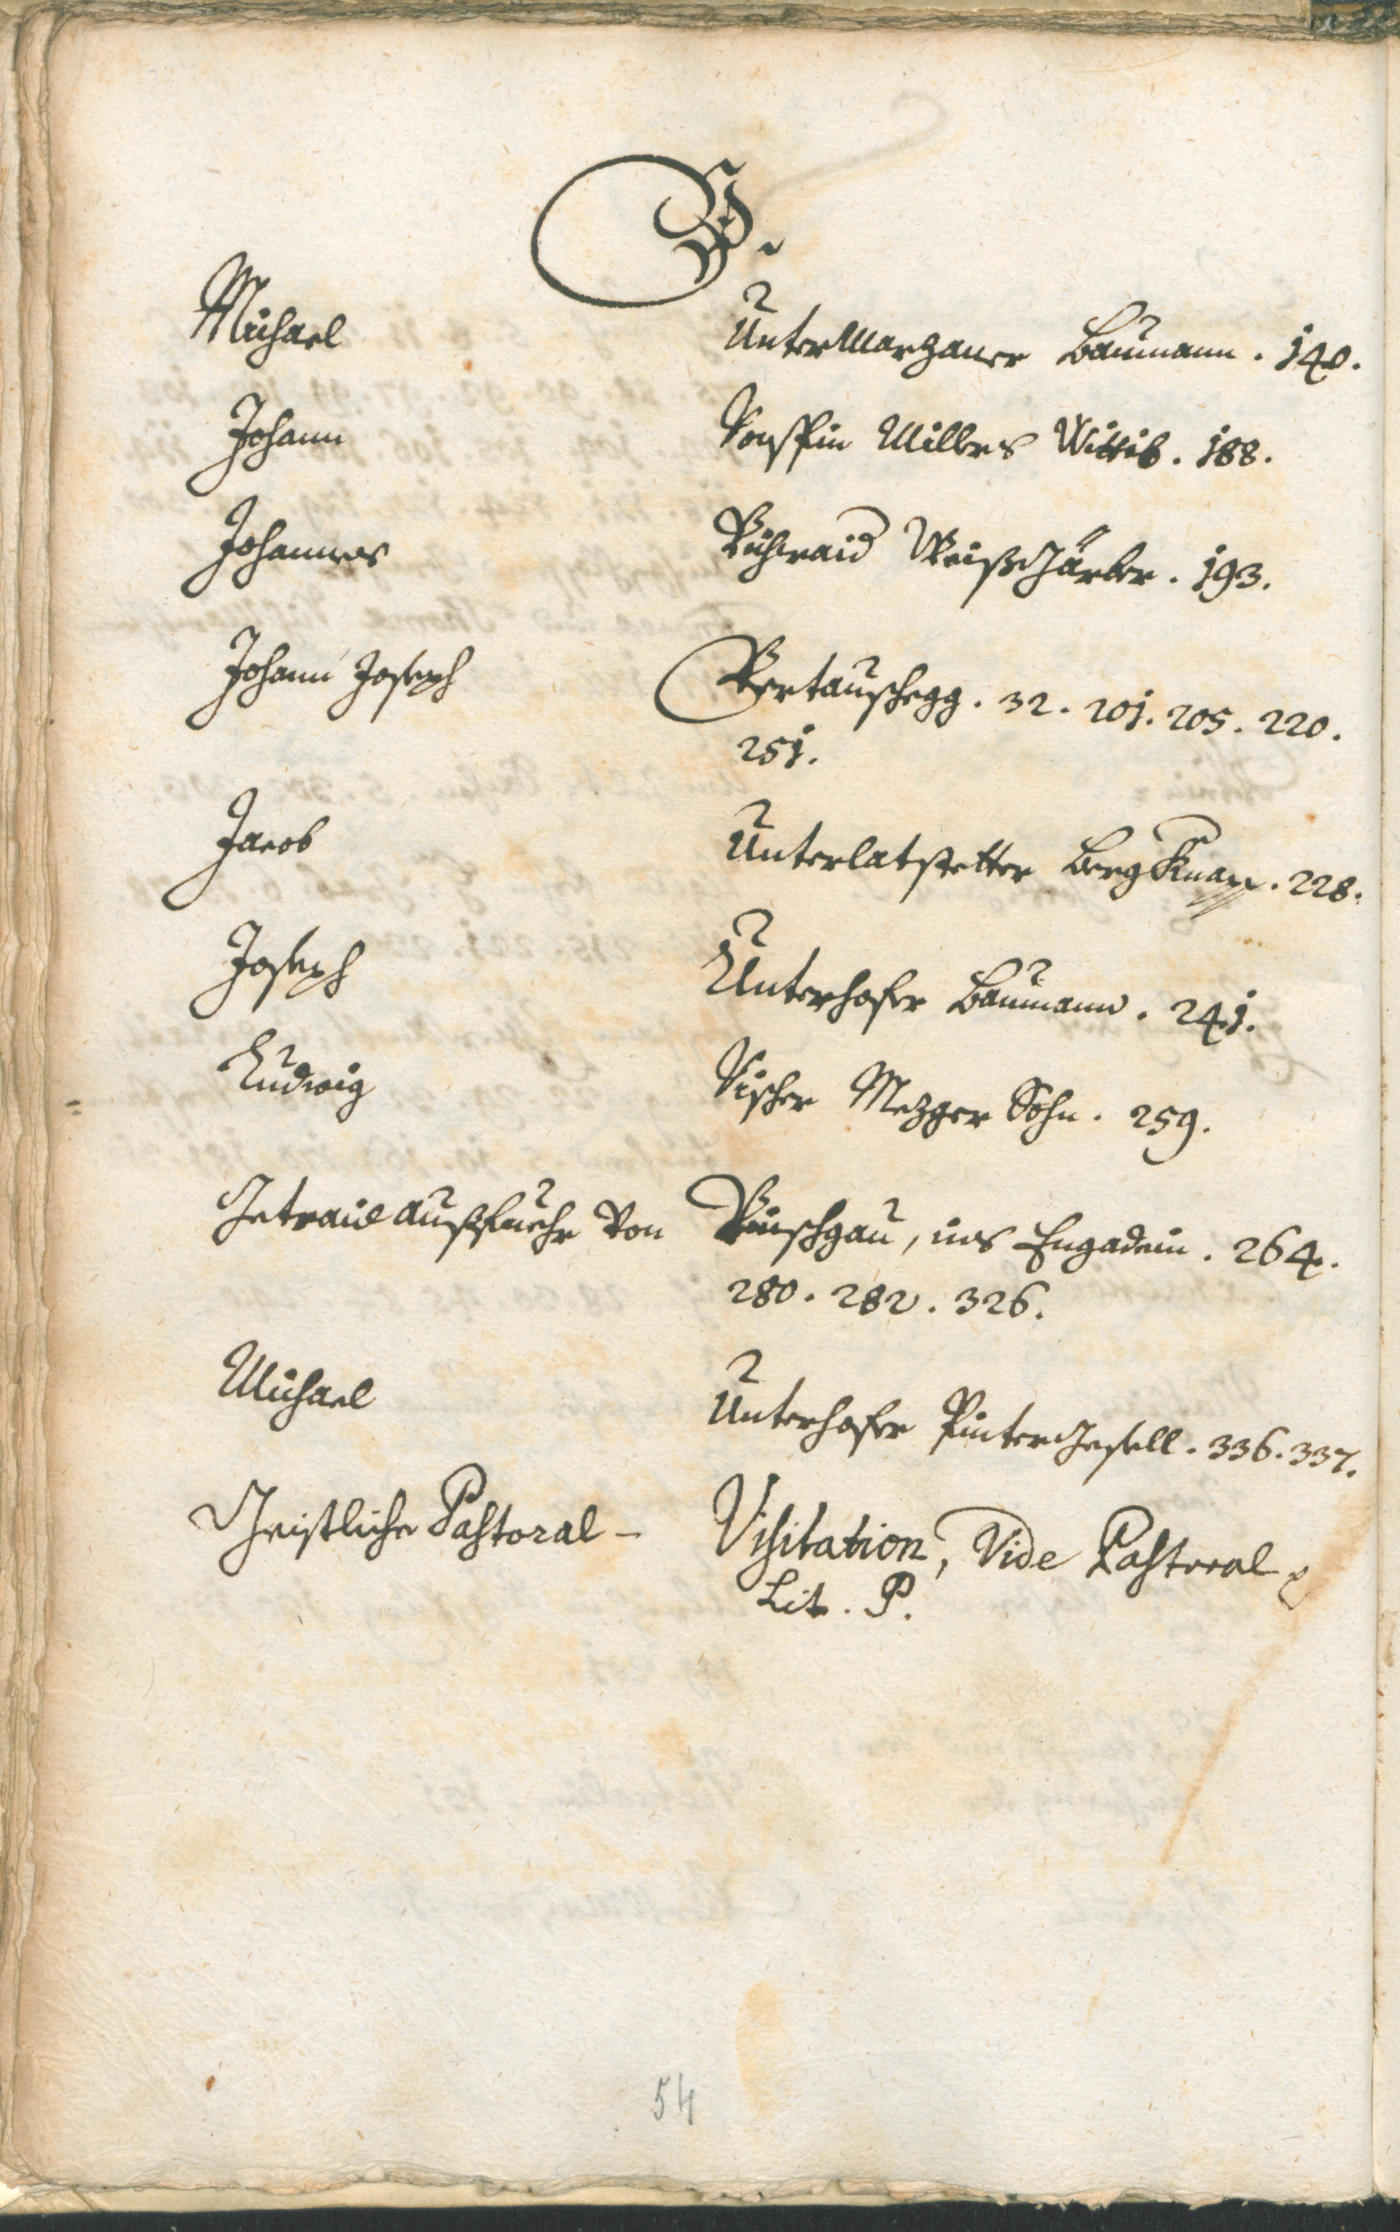 V.
Michael Untermarzaner Baumann. 140.
Johann Millers Wittib. 188.
Johannes Weißgärber. 193.
Johann Joseph Vertauschegg. 32. 201. 205. 220.
251.
Jacob Unterlatstetter BergKnapp. 228.
Joseph Unterhofer Baumann. 241.
Ludwig Vischer Mezger Sohn. 259.
Getraid außfuehr von Vinschgau, ins Engadein. 264.
280. 282. 326.
Michael Unterhofer Pintergesell. 336. 337.
Geistliche Pastoral- Visitation, Vide Pastoral
Lit. P.
54